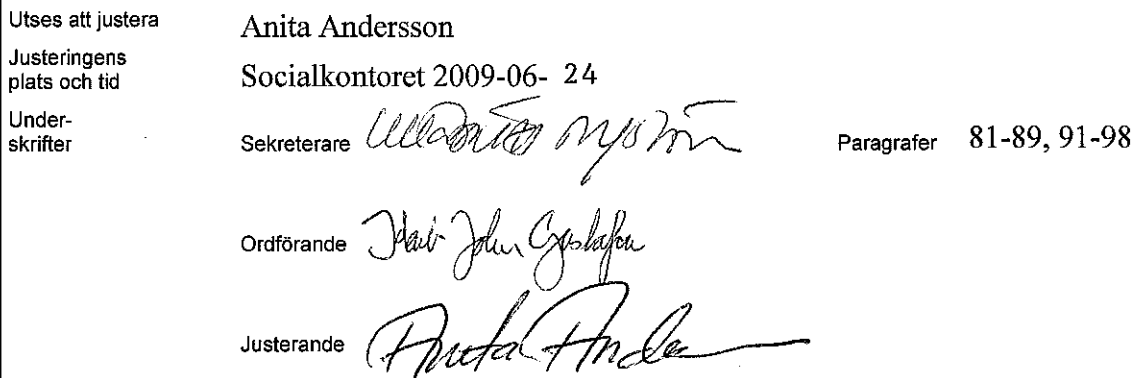 Utses att justera Anita Andersson
Justeringens
plats och tid Socialkontoret 2009-06- 24
Under-
skrifter
Sekreterare Paragrafer 81-89, 91-98
Ordförande John
Justerande Anita Ande